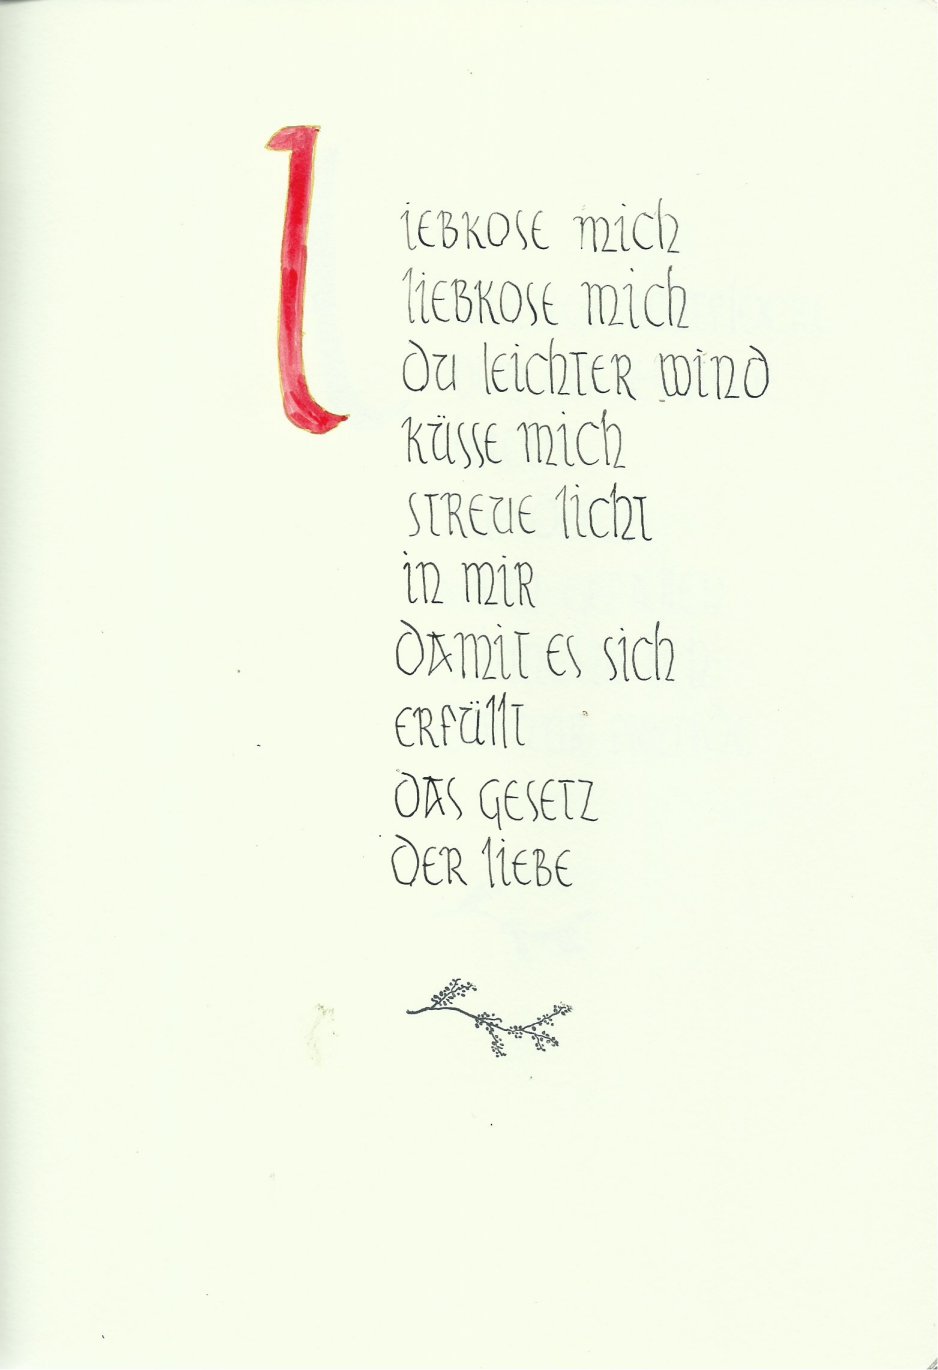 liebkose mich
liebkose mich
du leichter wind
küsse mich
streue licht
in mir
damit es sich
erfüllt
das gesetz
der liebe